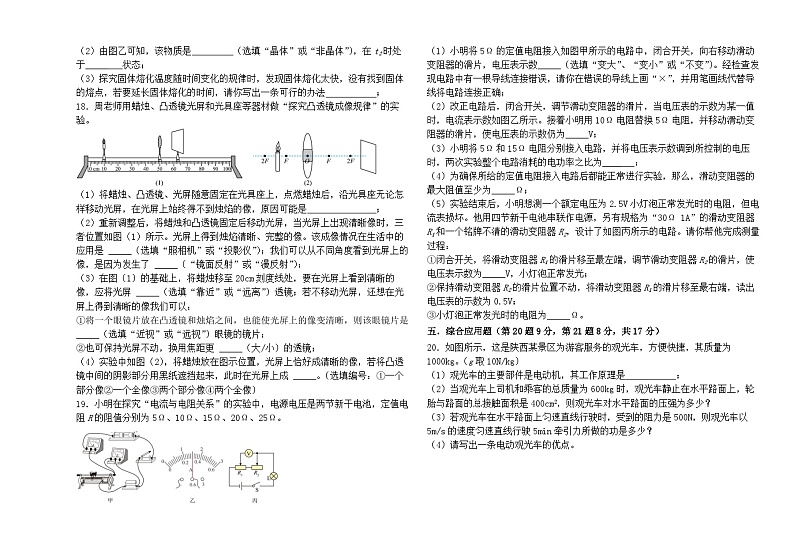 （2）由图乙可知，该物质是________（选填“晶体”或“非晶体”），在 t₂时处
于_______状态；
（3）探究固体熔化温度随时间变化的规律时，发现固体熔化太快，没有找到固体
的熔点，若要延长固体熔化的时间，请你写出一条可行的办法__________；
18．周老师用蜡烛、凸透镜光屏和光具座等器材做“探究凸透镜成像规律”的实
验。
0 cm 10 20 30 40 50 60 70 80 90 100
2F F O F 2F
(1) (2)
（1）将蜡烛、凸透镜、光屏随意固定在光具座上，点燃蜡烛后，沿光具座无论怎
样移动光屏，在光屏上始终得不到烛焰的像，原因可能是_____________；
（2）重新调整后，将蜡烛和凸透镜固定后移动光屏，当光屏上出现清晰像时，三
者位置如图（1）所示。光屏上得到烛焰清晰、完整的像。该成像情况在生活中的
应用是 _____（选填“照相机”或“投影仪”）；我们可以从不同角度看到光屏上的
像，是因为发生了 _____（“镜面反射”或“漫反射”）；
（3）在图（1）的基础上，将蜡烛移至20cm刻度线处，要在光屏上看到清晰的
像，应将光屏 _____（选填“靠近”或“远离”）透镜；若不移动光屏，还想在光
屏上得到清晰的像我们可以：
①将一个眼镜片放在凸透镜和烛焰之间，也能使光屏上的像变清晰，则该眼镜片是
_____（选填“近视”或“远视”）眼镜的镜片；
②也可保持光屏不动，换用焦距更 _____（大/小）的透镜；
（4）实验中如图（2），将蜡烛放在图示位置，光屏上恰好成清晰的像，若将凸透
镜中间的阴影部分用黑纸遮挡起来，此时在光屏上成 _____。（选填编号：①一个
部分像②一个全像③两个部分像④两个全像）
19．小明在探究“电流与电阻关系”的实验中，电源电压是两节新干电池，定值电
阻 R 的阻值分别为 5Ω、10Ω、15Ω、20Ω、25Ω。
甲 乙 丙
（1）小明将5Ω的定值电阻接入如图甲所示的电路中，闭合开关，向右移动滑动
变阻器的滑片，电压表示数_____（选填“变大”、“变小”或“不变”）。经检查发
现电路中有一根导线连接错误，请你在错误的导线上画“×”，并用笔画线代替导
线将电路连接正确；
（2）改正电路后，闭合开关，调节滑动变阻器的滑片，当电压表的示数为某一值
时，电流表示数如图乙所示。接着小明用10Ω电阻替换5Ω电阻，并移动滑动变
阻器的滑片，使电压表的示数仍为_____V；
（3）小明将5Ω和15Ω电阻分别接入电路，并将电压表示数调到所控制的电压
时，两次实验整个电路消耗的电功率之比为_______；
（4）为确保所给的定值电阻接入电路后都能正常进行实验，那么，滑动变阻器的
最大阻值至少为_____Ω；
（5）实验结束后，小明想测一个额定电压为2.5V小灯泡正常发光时的电阻，但电
流表损坏。他用四节新干电池串联作电源，另有规格为“30Ω 1A”的滑动变阻器
R₁和一个铭牌不清的滑动变阻器R₂，设计了如图丙所示的电路。请你帮他完成测量
过程：
①闭合开关，将滑动变阻器R₁的滑片移至最左端，调节滑动变阻器R₂的滑片，使
电压表示数为_____V，小灯泡正常发光；
②保持滑动变阻器R₂的滑片位置不动，将滑动变阻器R₁的滑片移至最右端，读出
电压表的示数为0.5V；
③小灯泡正常发光时的电阻为_____Ω。
五．综合应用题（第20题9分，第21题8分，共17分）
20．如图所示，这是陕西某景区为游客服务的观光车，方便快捷，其质量为
1000kg。（g 取10N/kg）
（1）观光车的主要部件是电动机，其工作原理是__________；
（2）当观光车上司机和乘客的总质量为600kg时，观光车静止在水平路面上，轮
胎与路面的总接触面积是400cm²，则观光车对水平路面的压强为多少？
（3）若观光车在水平路面上匀速直线行驶时，受到的阻力是500N，则观光车以
5m/s的速度匀速直线行驶5min牵引力所做的功是多少？
（4）请写出一条电动观光车的优点。